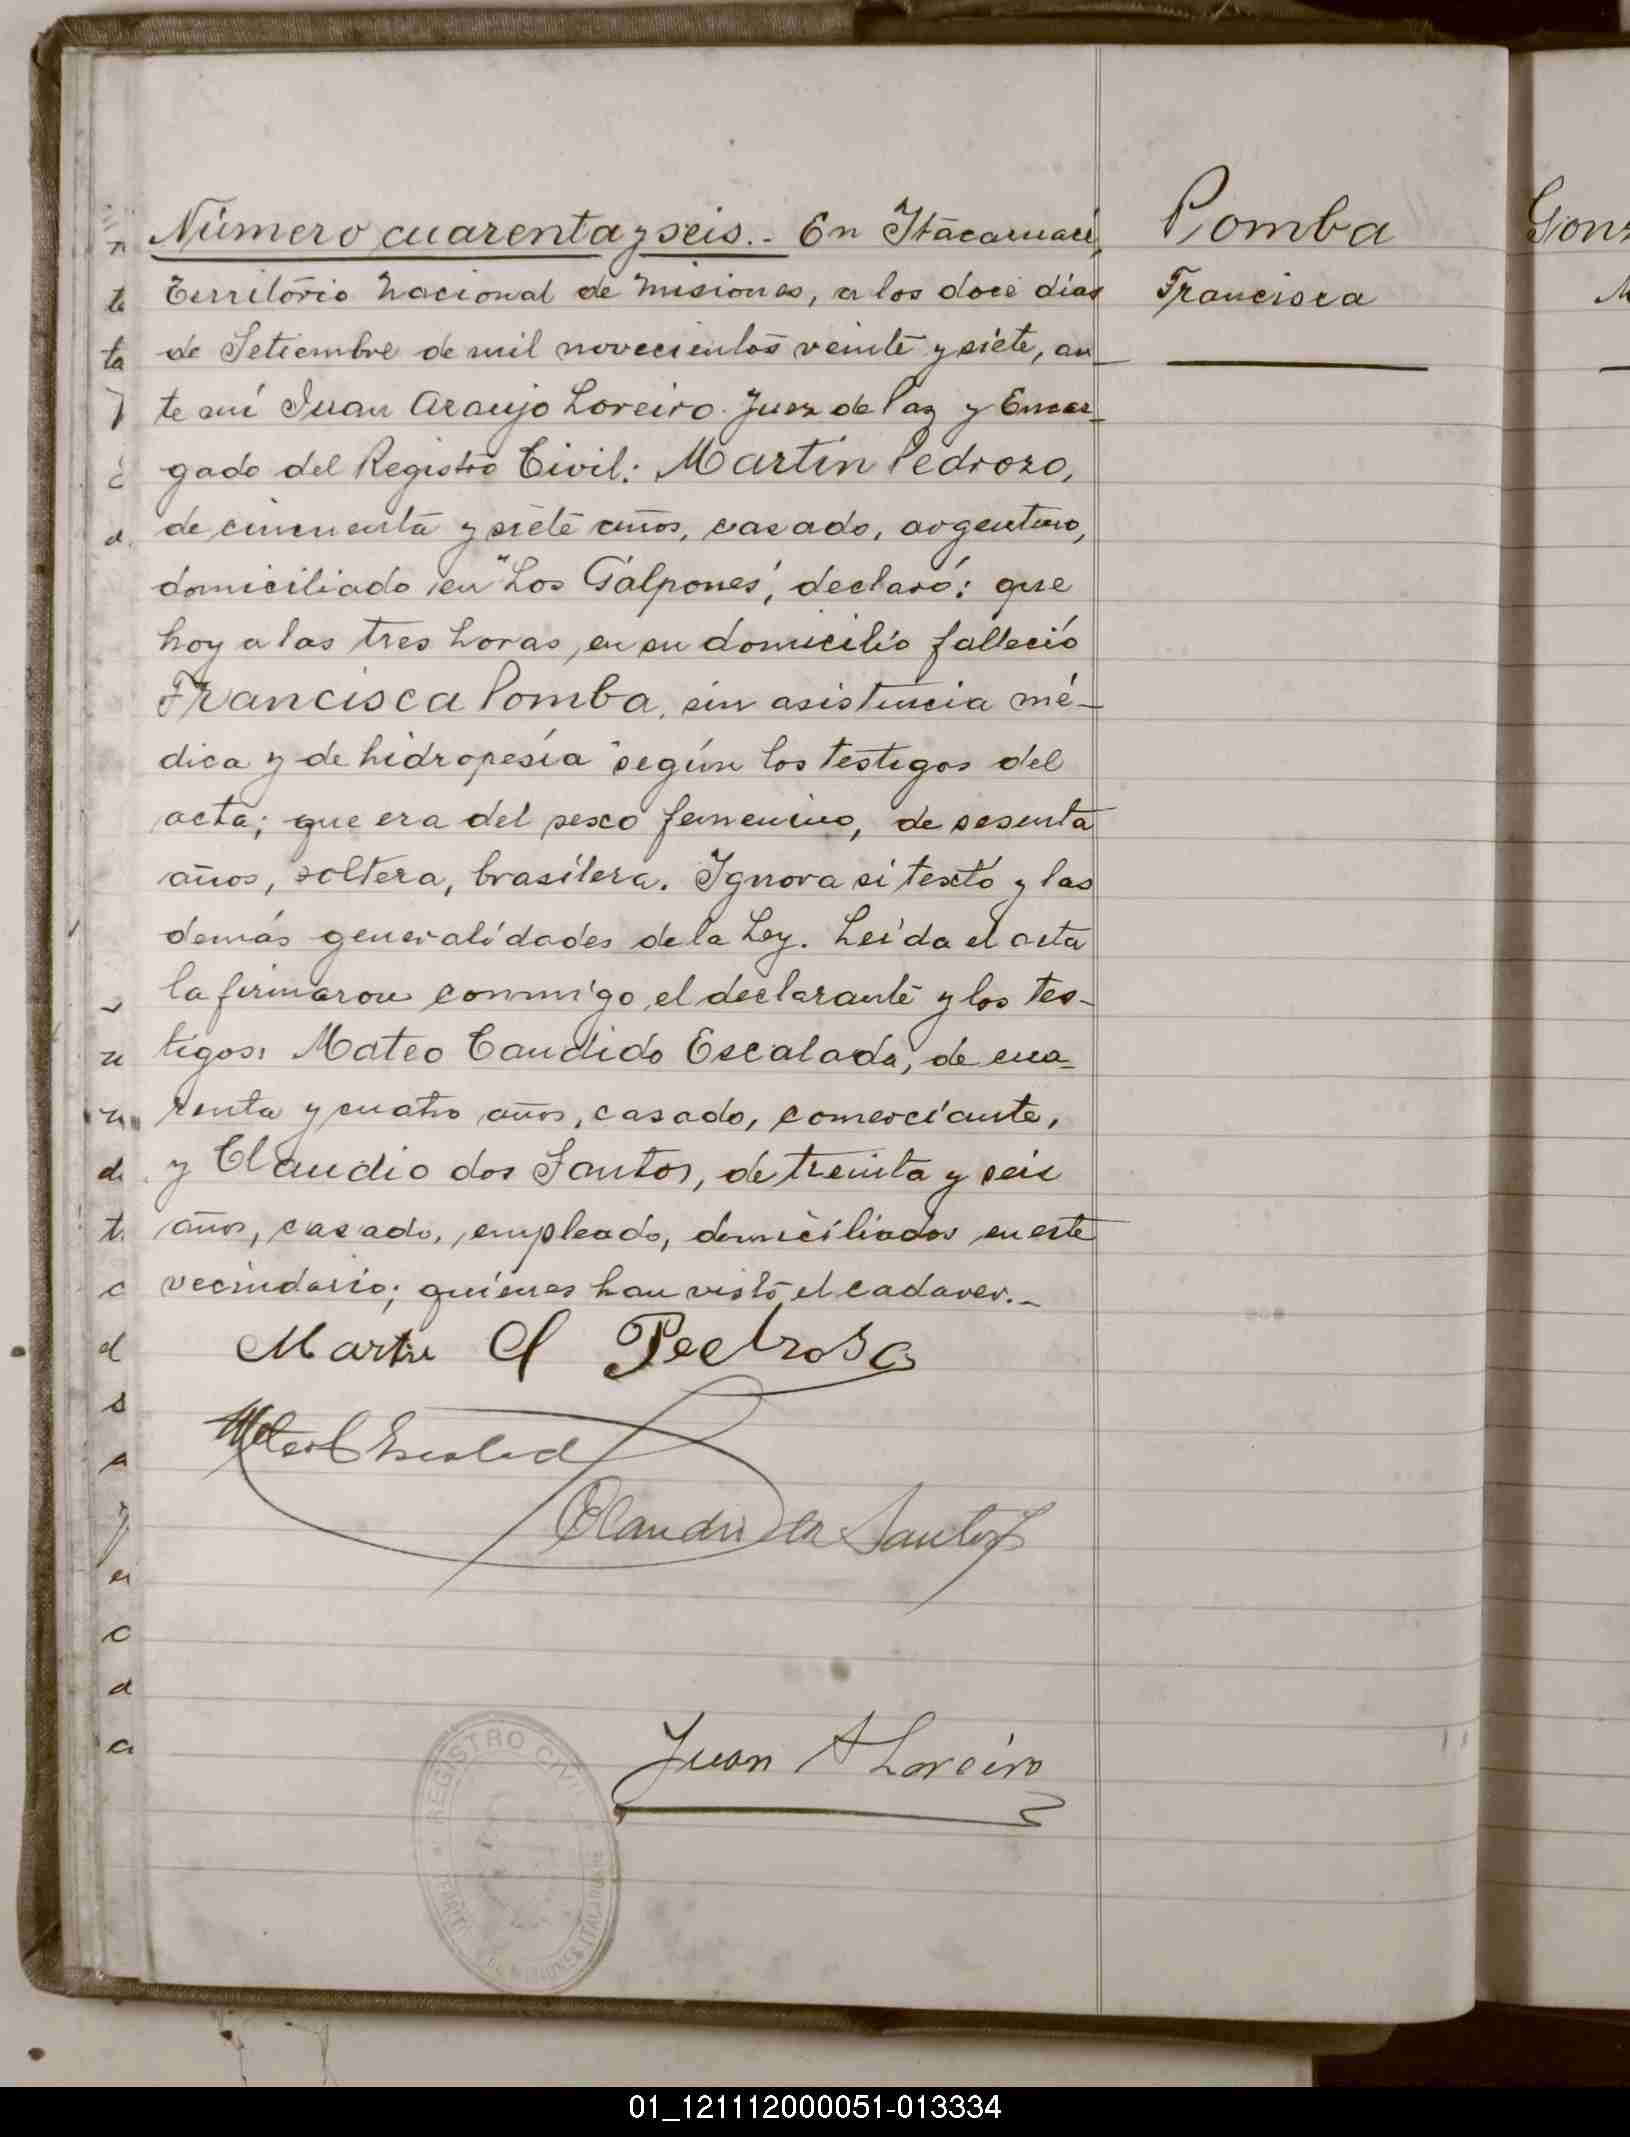 Número cuarenta y seis.- En Itacaruaré,
Territorio Nacional de Misiones, a los doce dias
de Setiembre de mil novecientos veinte y siete, an-
te mí Juan Araujo Loreiro. Juez de Paz y Encar-
gado del Registro Civil: Martín Pedrozo,
de cincuenta y siete años, casado, argentino,
domiciliado en "Los Galpones", declaró: que
hoy a las tres horas, en su domicilio falleció
Francisca Pomba, sin asistencia mé-
dica y de hidropesía según los testigos del
acta; que era del sexo femenino, de sesenta
años, soltera, brasilera. Ignora si textó y las
demás generalidades de la Ley. Leída el acta
la firmaron conmigo, el declarante y los tes-
tigos: Mateo Candido Escalada, de cua-
renta y cuatro años, casado, comerciante,
y Claudio dos Santos, de treinta y seis
años, casado, empleado, domiciliados en este
vecindario; quienes han visto el cadaver.-
Martin Pedroso
Claudio dos Santos
Juan A Loreiro
REGISTRO CIVIL
Pomba
Francisca
Gonz
01_121112000051-013334